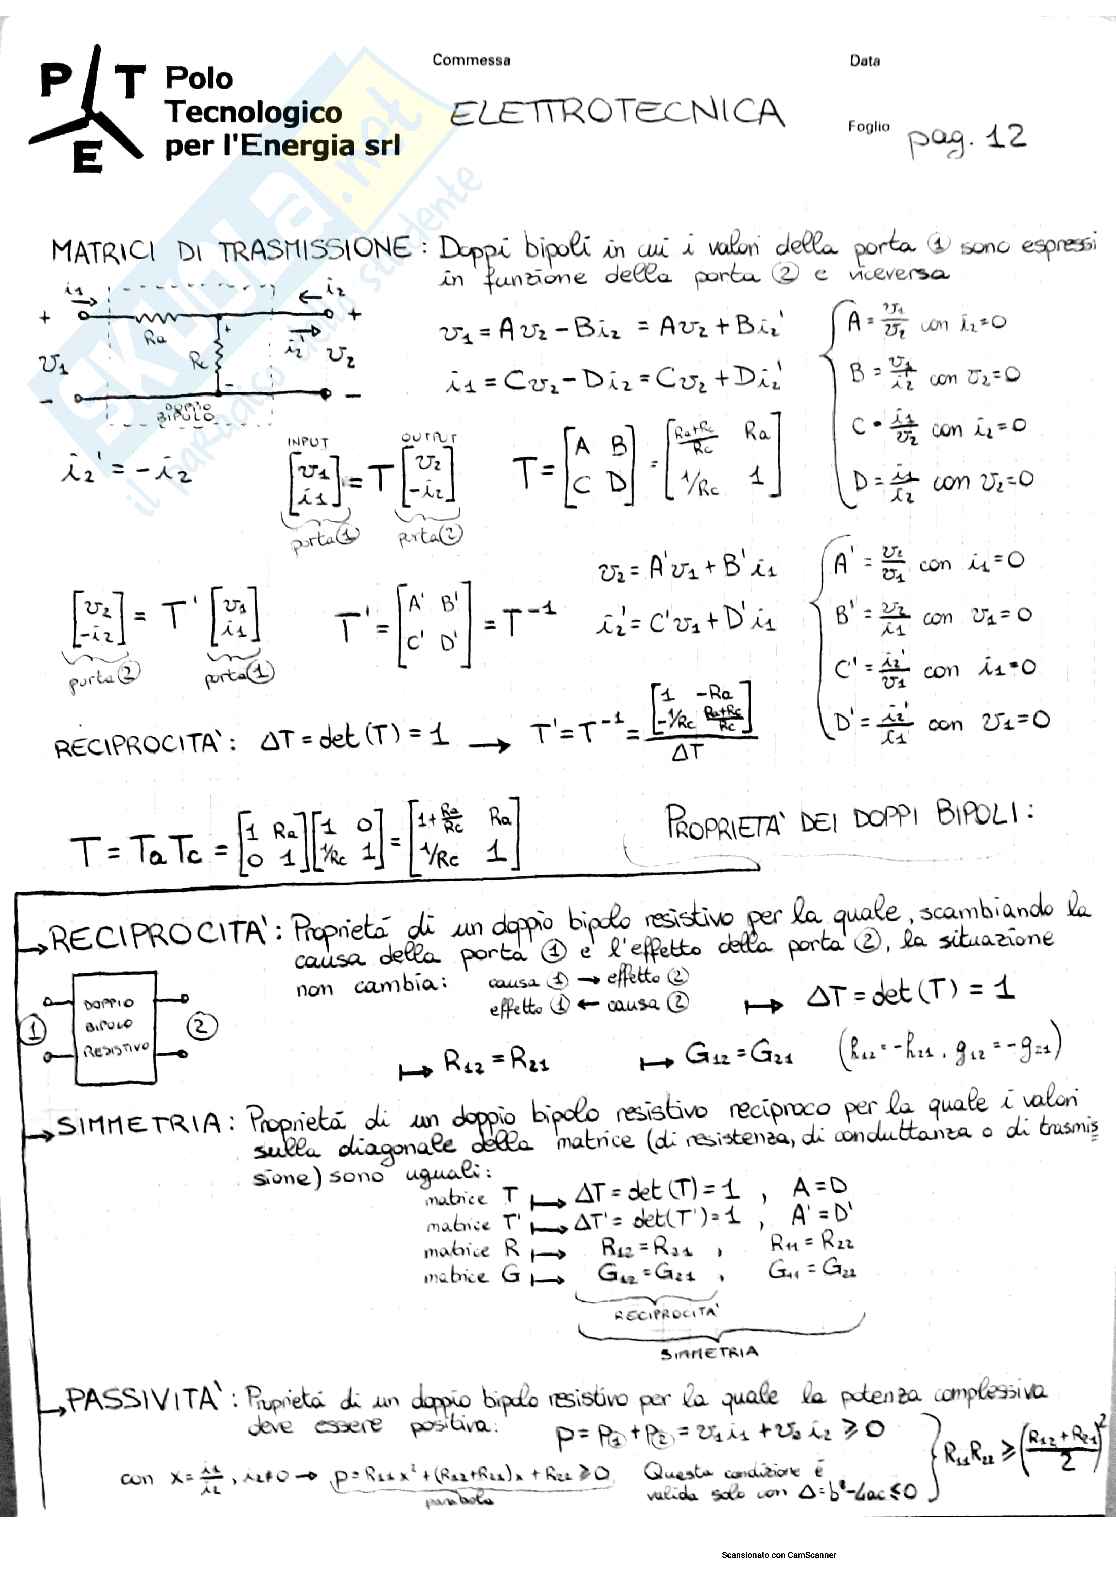 P T E
Polo
Tecnologico
per l'Energia srl
Commessa
ELETTROTECNICA
Data
Foglio pag. 12
SKUOLA.net
il paradiso dello studente
MATRICI DI TRASMISSIONE: Doppi bipoli in cui i valori della porta ① sono espressi
in funzione della porta ② e viceversa
i1 i2
+ Ra + i2' +
v1 Rc v2
- - -
DOPPIO
BIPOLO
v1 = Av2 - Bi2 = Av2 + Bi2'
i1 = Cv2 - Di2 = Cv2 + Di2'
A = v1/v2 con i2=0
B = v1/i2 con v2=0
C = i1/v2 con i2=0
D = i1/i2 con v2=0
i2' = -i2
INPUT OUTPUT
[v1 i1] = T [v2 -i2]
porta ① porta ②
T = [A B; C D] = [(Ra+Rc)/Rc Ra; 1/Rc 1]
[v2 -i2] = T' [v1 i1]
porta ② porta ①
T' = [A' B'; C' D'] = T⁻¹
v2 = A'v1 + B'i1
i2' = C'v1 + D'i1
A' = v2/v1 con i1=0
B' = v2/i1 con v1=0
C' = i2'/v1 con i1=0
D' = i2'/i1 con v1=0
RECIPROCITA': ΔT = det(T) = 1 → T' = T⁻¹ = [1 -Ra; -1/Rc (Ra+Rc)/Rc] / ΔT
T = Ta Tc = [1 Ra; 0 1] [1 0; 1/Rc 1] = [1+Ra/Rc Ra; 1/Rc 1]
PROPRIETA' DEI DOPPI BIPOLI:
→ RECIPROCITA': Proprietá di un doppio bipolo resistivo per la quale, scambiando la
causa della porta ① e l'effetto della porta ②, la situazione
non cambia: causa ① → effetto ②
effetto ① ← causa ② ↦ ΔT = det(T) = 1
① DOPPIO BIPOLO RESISTIVO ②
↦ R12 = R21 ↦ G12 = G21 (h12 = -h21, g12 = -g21)
→ SIMMETRIA: Proprietá di un doppio bipolo resistivo reciproco per la quale i valori
sulla diagonale della matrice (di resistenza, di conduttanza o di trasmis
sione) sono uguali:
matrice T ↦ ΔT = det(T) = 1 , A = D
matrice T' ↦ ΔT' = det(T') = 1 , A' = D'
matrice R ↦ R12 = R21 , R11 = R22
matrice G ↦ G12 = G21 , G11 = G22
RECIPROCITA'
SIMMETRIA
→ PASSIVITA': Proprietá di un doppio bipolo resistivo per la quale la potenza complessiva
deve essere positiva: p = p① + p② = v1i1 + v2i2 ⩾ 0
con x = i1/i2, i2≠0 → p = R11x² + (R12+R21)x + R22 ⩾ 0
parabola
Questa condizione è
valida solo con Δ = b²-4ac ⩽ 0
} R11R22 ⩾ ((R12+R21)/2)²
Scansionato con CamScanner